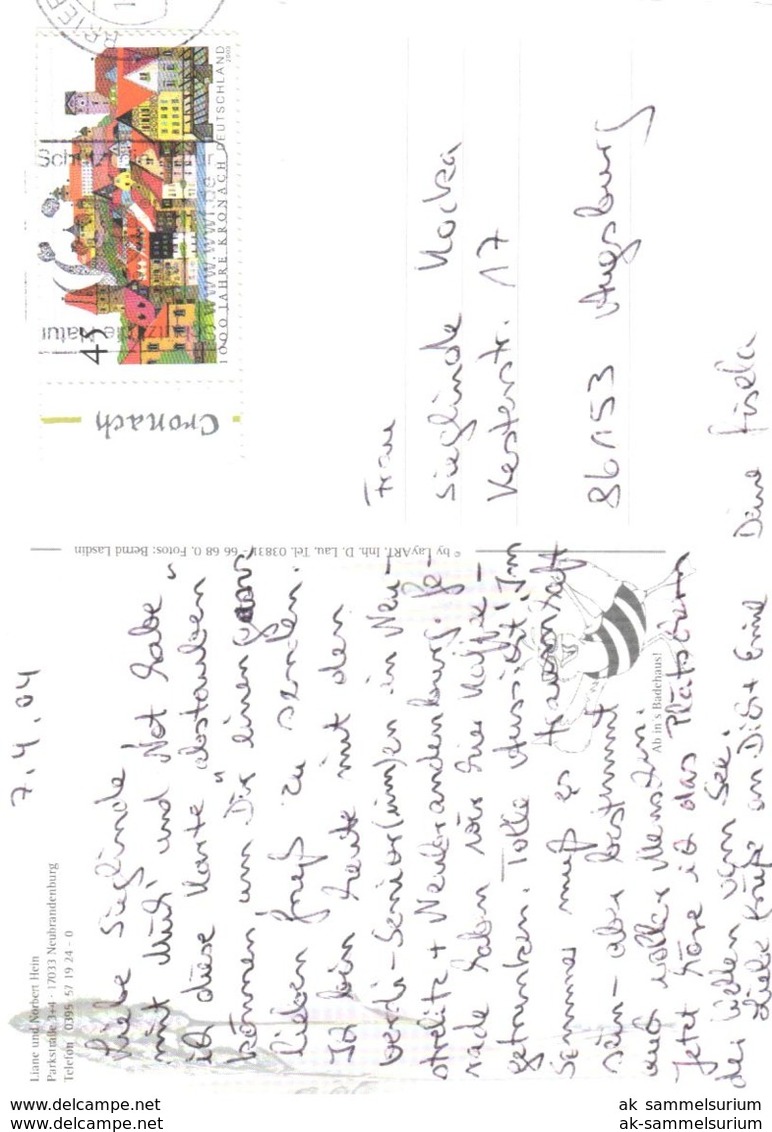 Liane und Norbert Hein
Parkstraße 3+4 · 17033 Neubrandenburg
Telefon 0395 - 57 19 24 - 0
7.4.04
Liebe Sieglinde
mit Müh' und Not habe
ich diese Karte "abstauben"
können um Dir einen
lieben Gruß zu senden.
Ich bin heute mit den
verdi-Senior(inn)en in Neu-
strelitz + Neubrandenburg. Ge-
rade haben wir hier Kaffee
getrunken. Tolle Aussicht! Im
Sommer muß es traumhaft
sein - aber bestimmt
auch voller Menschen.
Jetzt höre ich das Plätschern
der Wellen vom See.
Liebe Grüße an Dich + Deine Gisela
Ab in's Badehaus!
© by LayART, Inh. D. Lau, Tel. 03831 - 66 68 0, Fotos: Bernd Lasdin
Cronach
45
1000 JAHRE KRONACH DEUTSCHLAND
2003
Schützt die Natur
www.wwf.de
BRIEF
Frau
Sieglinde Kocka
Kesterstr. 17
86153 Augsburg
ak_sammelsurium
ak-sammelsurium